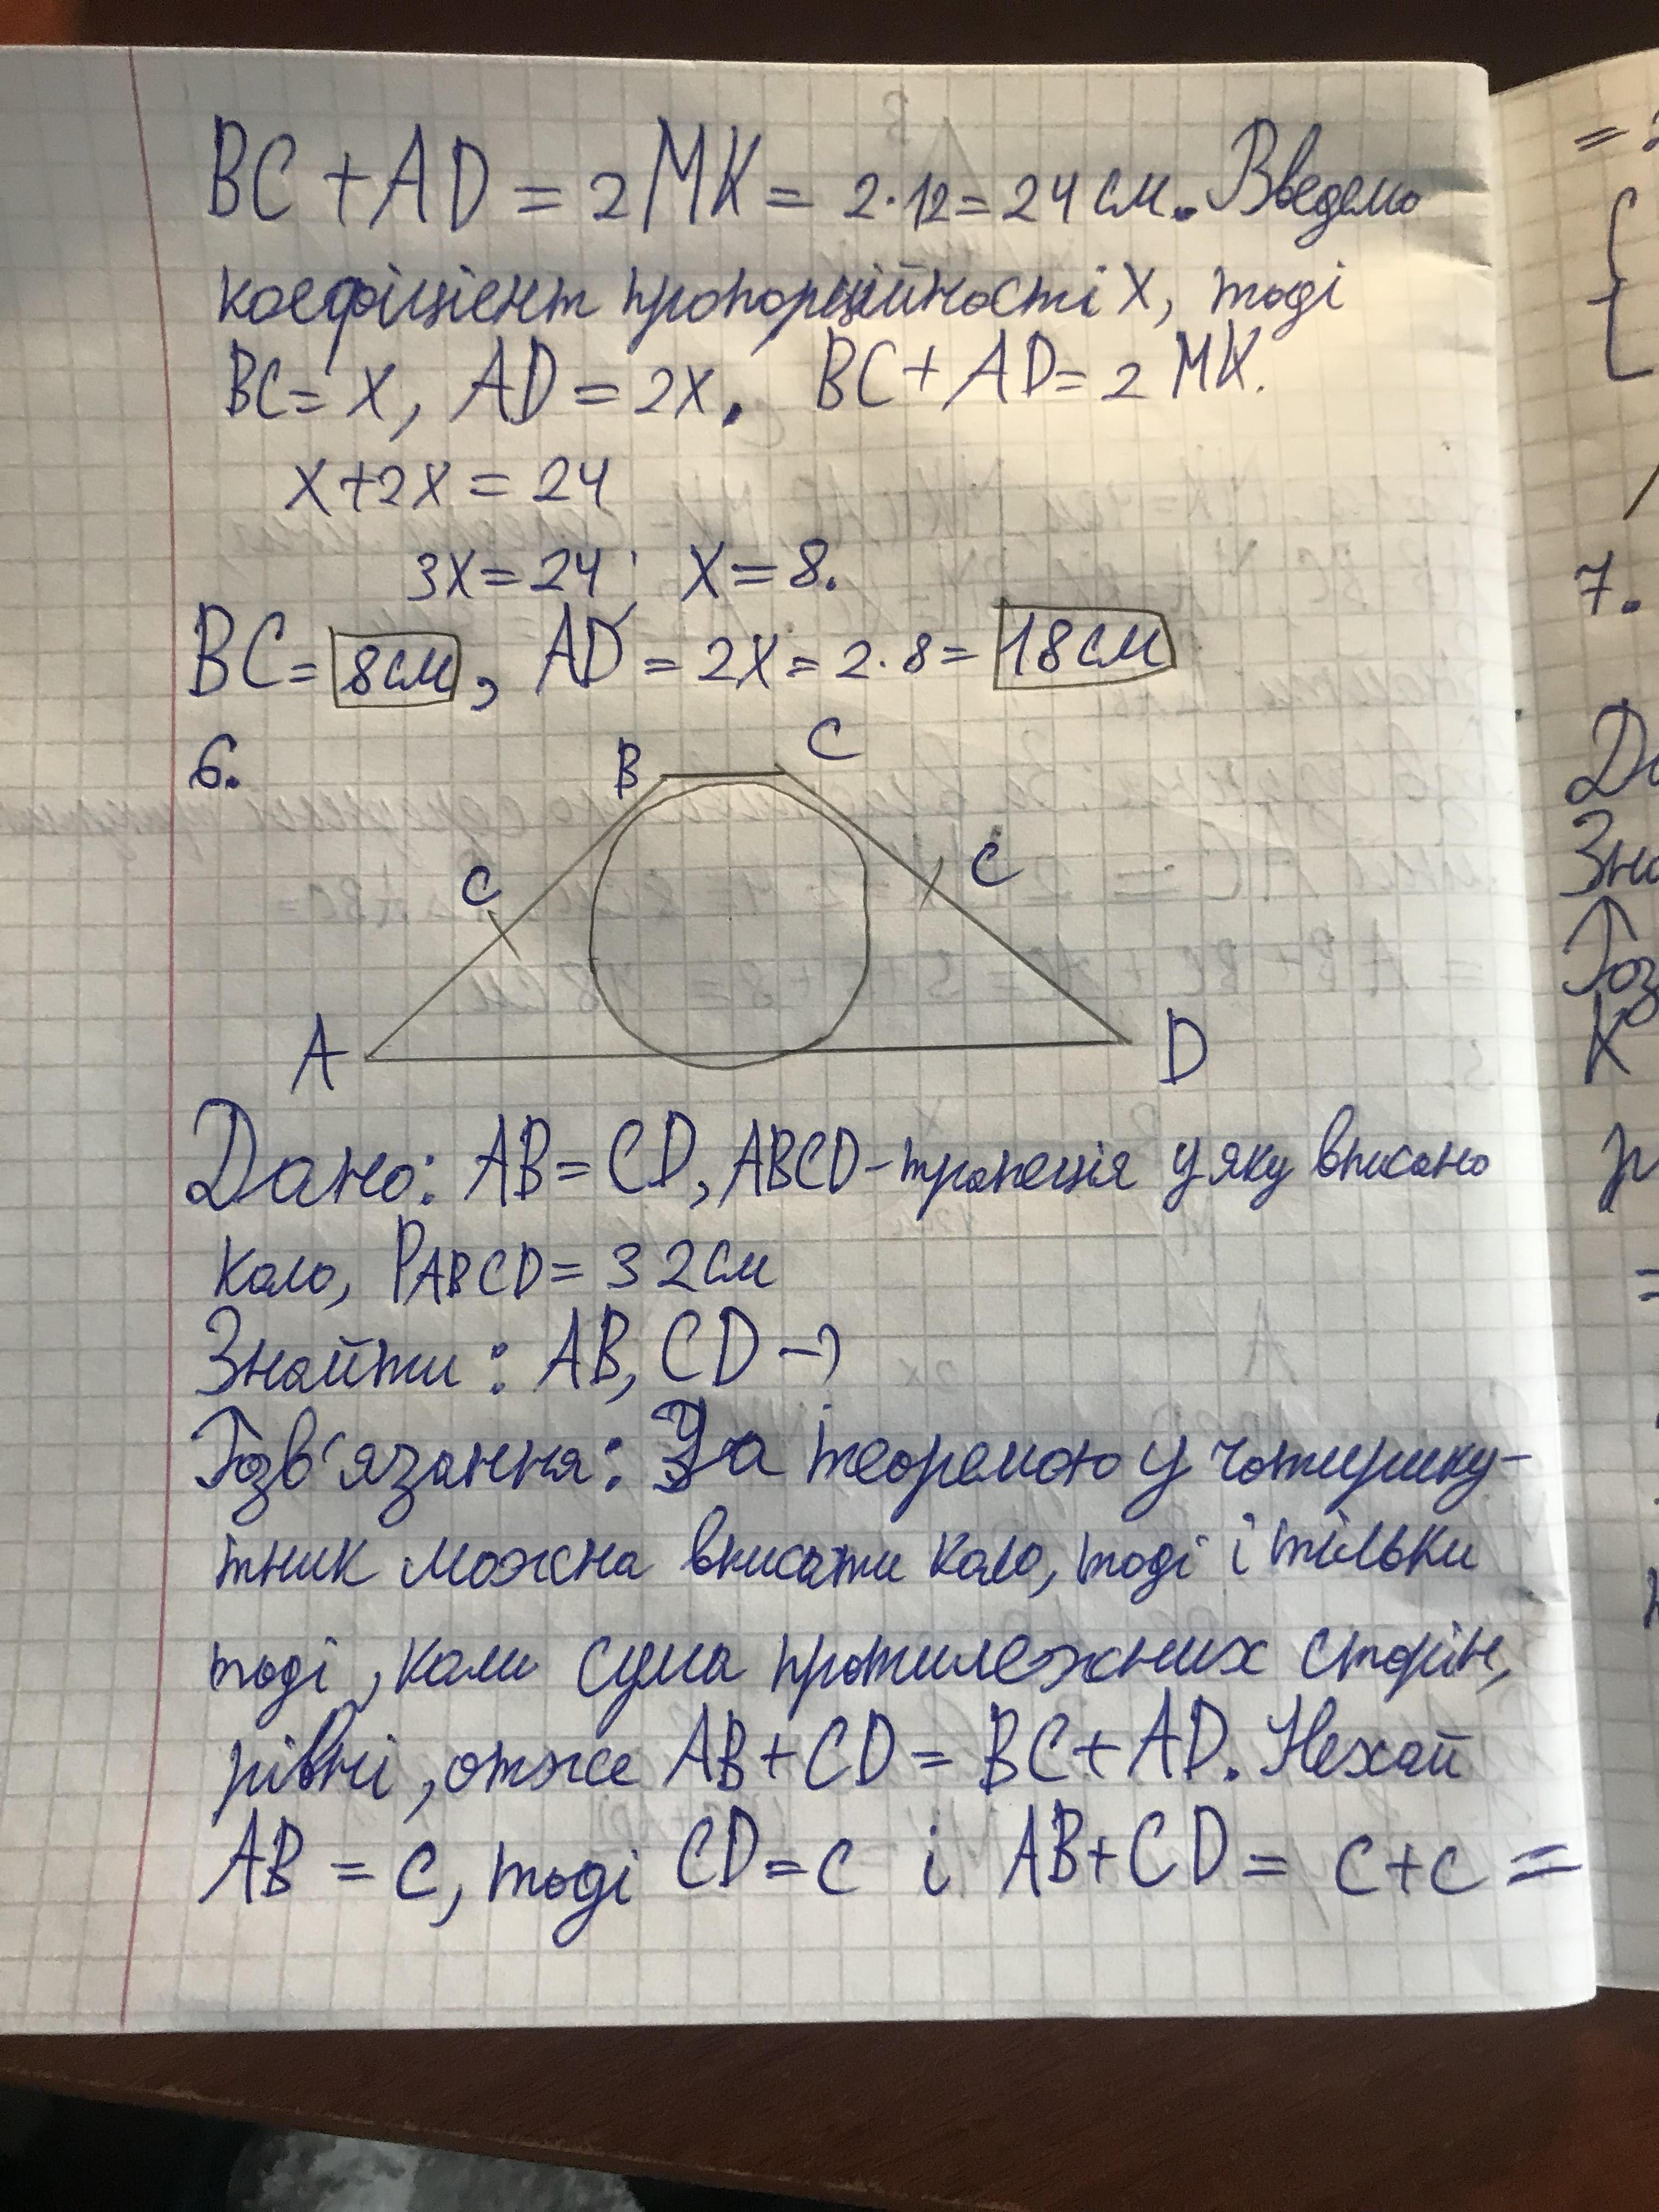 BC + AD = 2 MK = 2·12 = 24 см. Введемо
коефіцієнт пропорційності X, тоді
BC = X, AD = 2X. BC + AD = 2 MK.
X + 2X = 24
3X = 24; X = 8.
BC = 8 см, AD = 2X = 2·8 = 18 см
6.
B C
C C
A D
Дано: AB = CD, ABCD - трапеція у яку вписано
коло, PABCD = 32 см
Знайти: AB, CD - ?
Розв'язання: За теоремою у чотирику-
тник можна вписати коло, тоді і тільки
тоді, коли сума протилежних сторін,
рівні, отже AB + CD = BC + AD. Нехай
AB = C, тоді CD = C і AB + CD = C + C =
= 2
7.
До
Зна
Роз
К